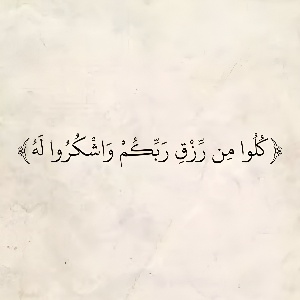 ﴿كُلُوا مِن رِّزْقِ رَبِّكُمْ وَاشْكُرُوا لَهُ﴾